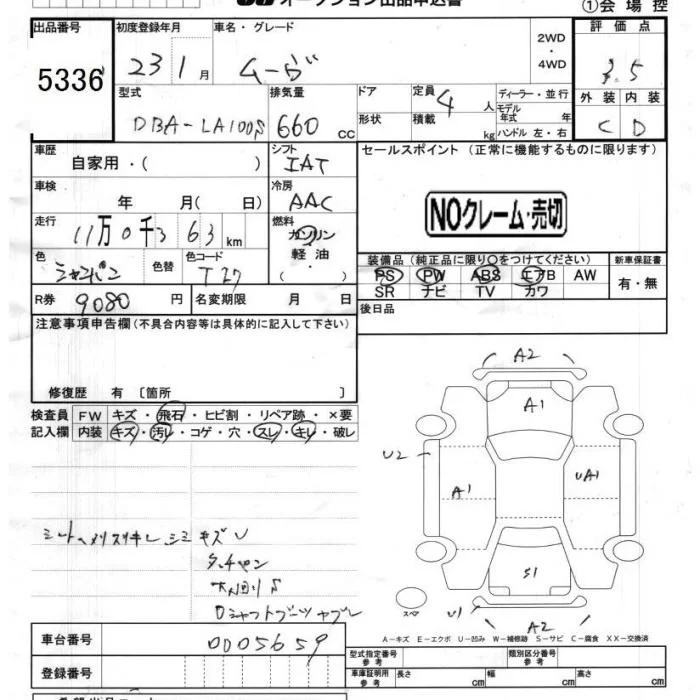 オークション出品申込書
①会場控
出品番号
5336
初度登録年月
23 1 月
車名・グレード
ムーヴ
2WD
・
4WD
評価点
3.5
型式
DBA-LA100S
排気量
660 cc
ドア
形状
定員
4 人
積載
kg
ディーラー・並行
モデル
年式 年
ハンドル 左・右
外装 内装
C D
車歴
自家用・( )
シフト
IAT
セールスポイント (正常に機能するものに限ります)
NOクレーム・売切
車検
年 月( 日)
冷房
AAC
走行
11万0千363 km
燃料
ガソリン
軽油・
( )
色
シャンパン
色替
色コード
T27
装備品 (純正品に限り○をつけてください)
PS PW ABS エアB AW
SR ナビ TV カワ
新車保証書
有・無
R券 9080 円
名変期限 月 日
後日品
注意事項申告欄 (不具合内容等は具体的に記入して下さい)
修復歴 有 〔箇所 〕
検査員
記入欄
FW キズ・飛石・ヒビ割・リペア跡・×要
内装 キズ・汚レ・コゲ・穴・スレ・キレ・破レ
A2
A1
U2
A1
UA1
S1
スペ
U1
A2
キズ U
Dシャフトブーツヤブレ
A-キズ E-エクボ U-凹み W-補修跡 S-サビ C-腐食 XX-交換済
車台番号 0005659
登録番号
型式指定番号
参考
類別区分番号
参考
車庫証明用
参考
長さ cm 幅 cm 高さ cm